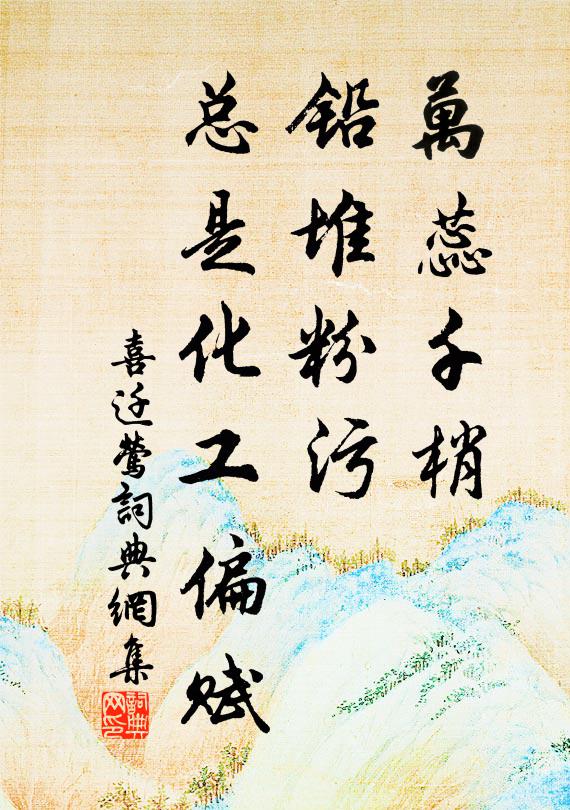 萬蕊千梢
铅堆粉污
总是化工偏赋
喜迁莺詞典網集
詞典
网印